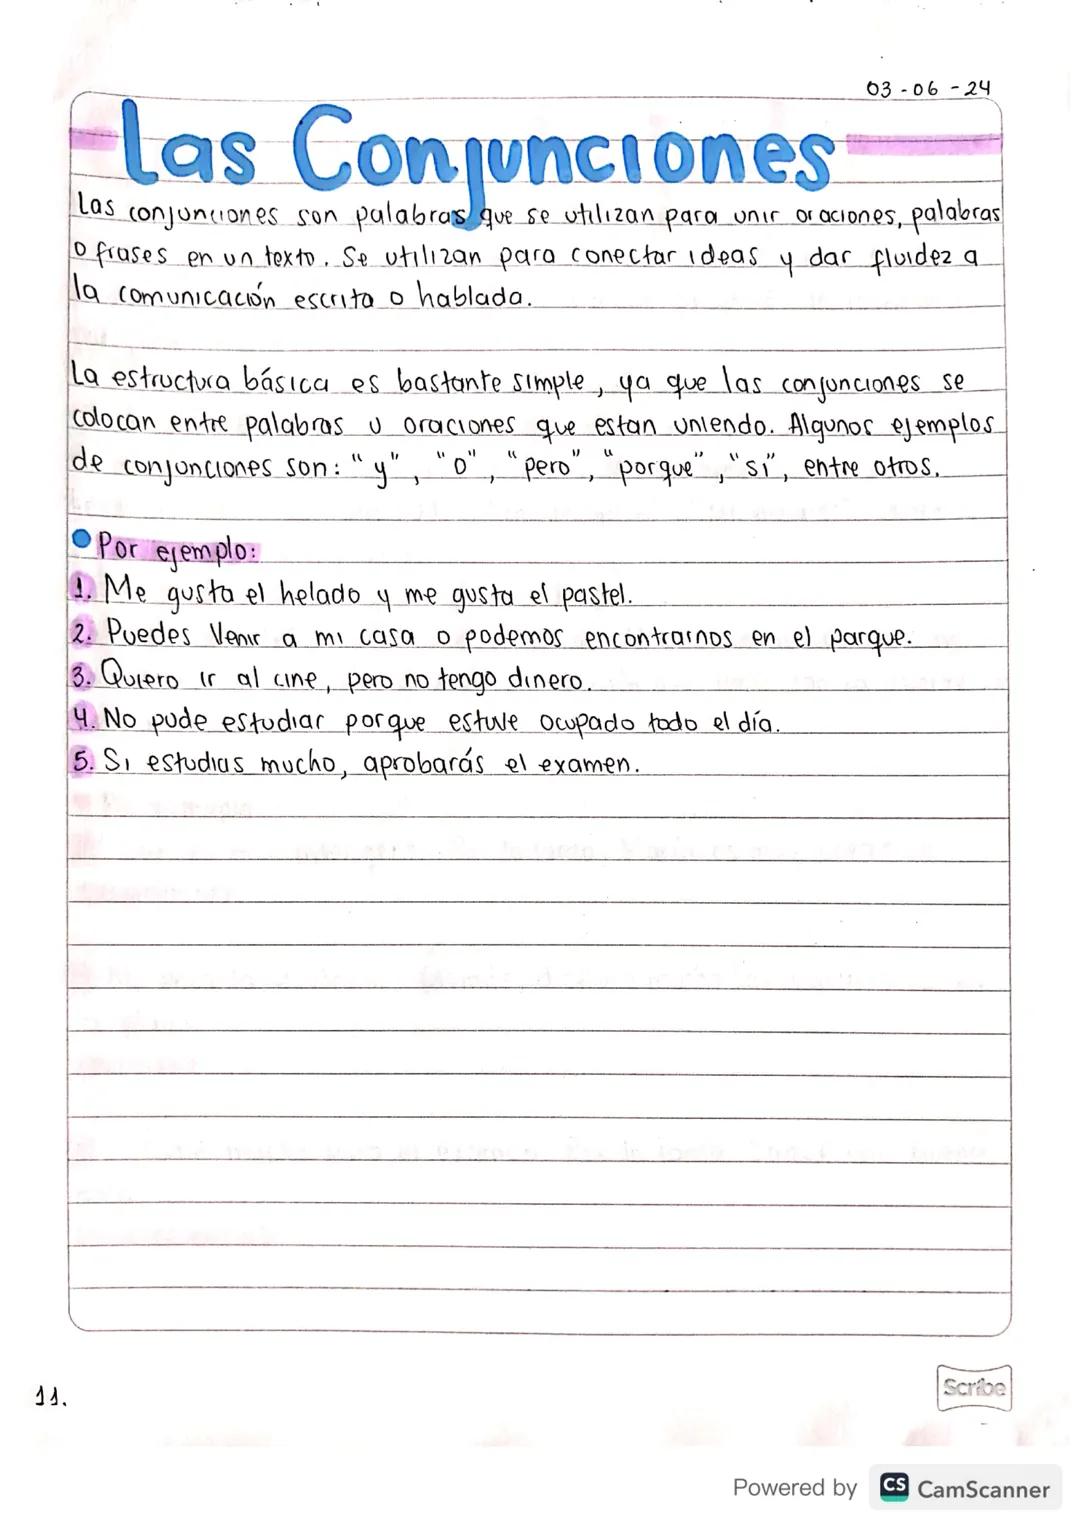 03-06-24
Las Conjunciones
Las conjunciones son palabras que se utilizan para unir oraciones, palabras
o frases en un texto. Se utilizan para conectar ideas y dar fluidez a
la comunicación escrita o hablada.
La estructura básica es bastante simple, ya que las conjunciones se
colocan entre palabras u oraciones que estan uniendo. Algunos ejemplos
de conjunciones son: "y", "o", "pero", "porque", "si", entre otros.
Por ejemplo:
1. Me gusta el helado y me gusta el pastel.
2. Puedes Venir a mi casa o podemos encontrarnos en el parque.
3. Quiero ir al cine, pero no tengo dinero.
4. No pude estudiar porque estuve ocupado todo el día.
5. Si estudias mucho, aprobarás el examen.
11.
Scribe
Powered by CS CamScanner